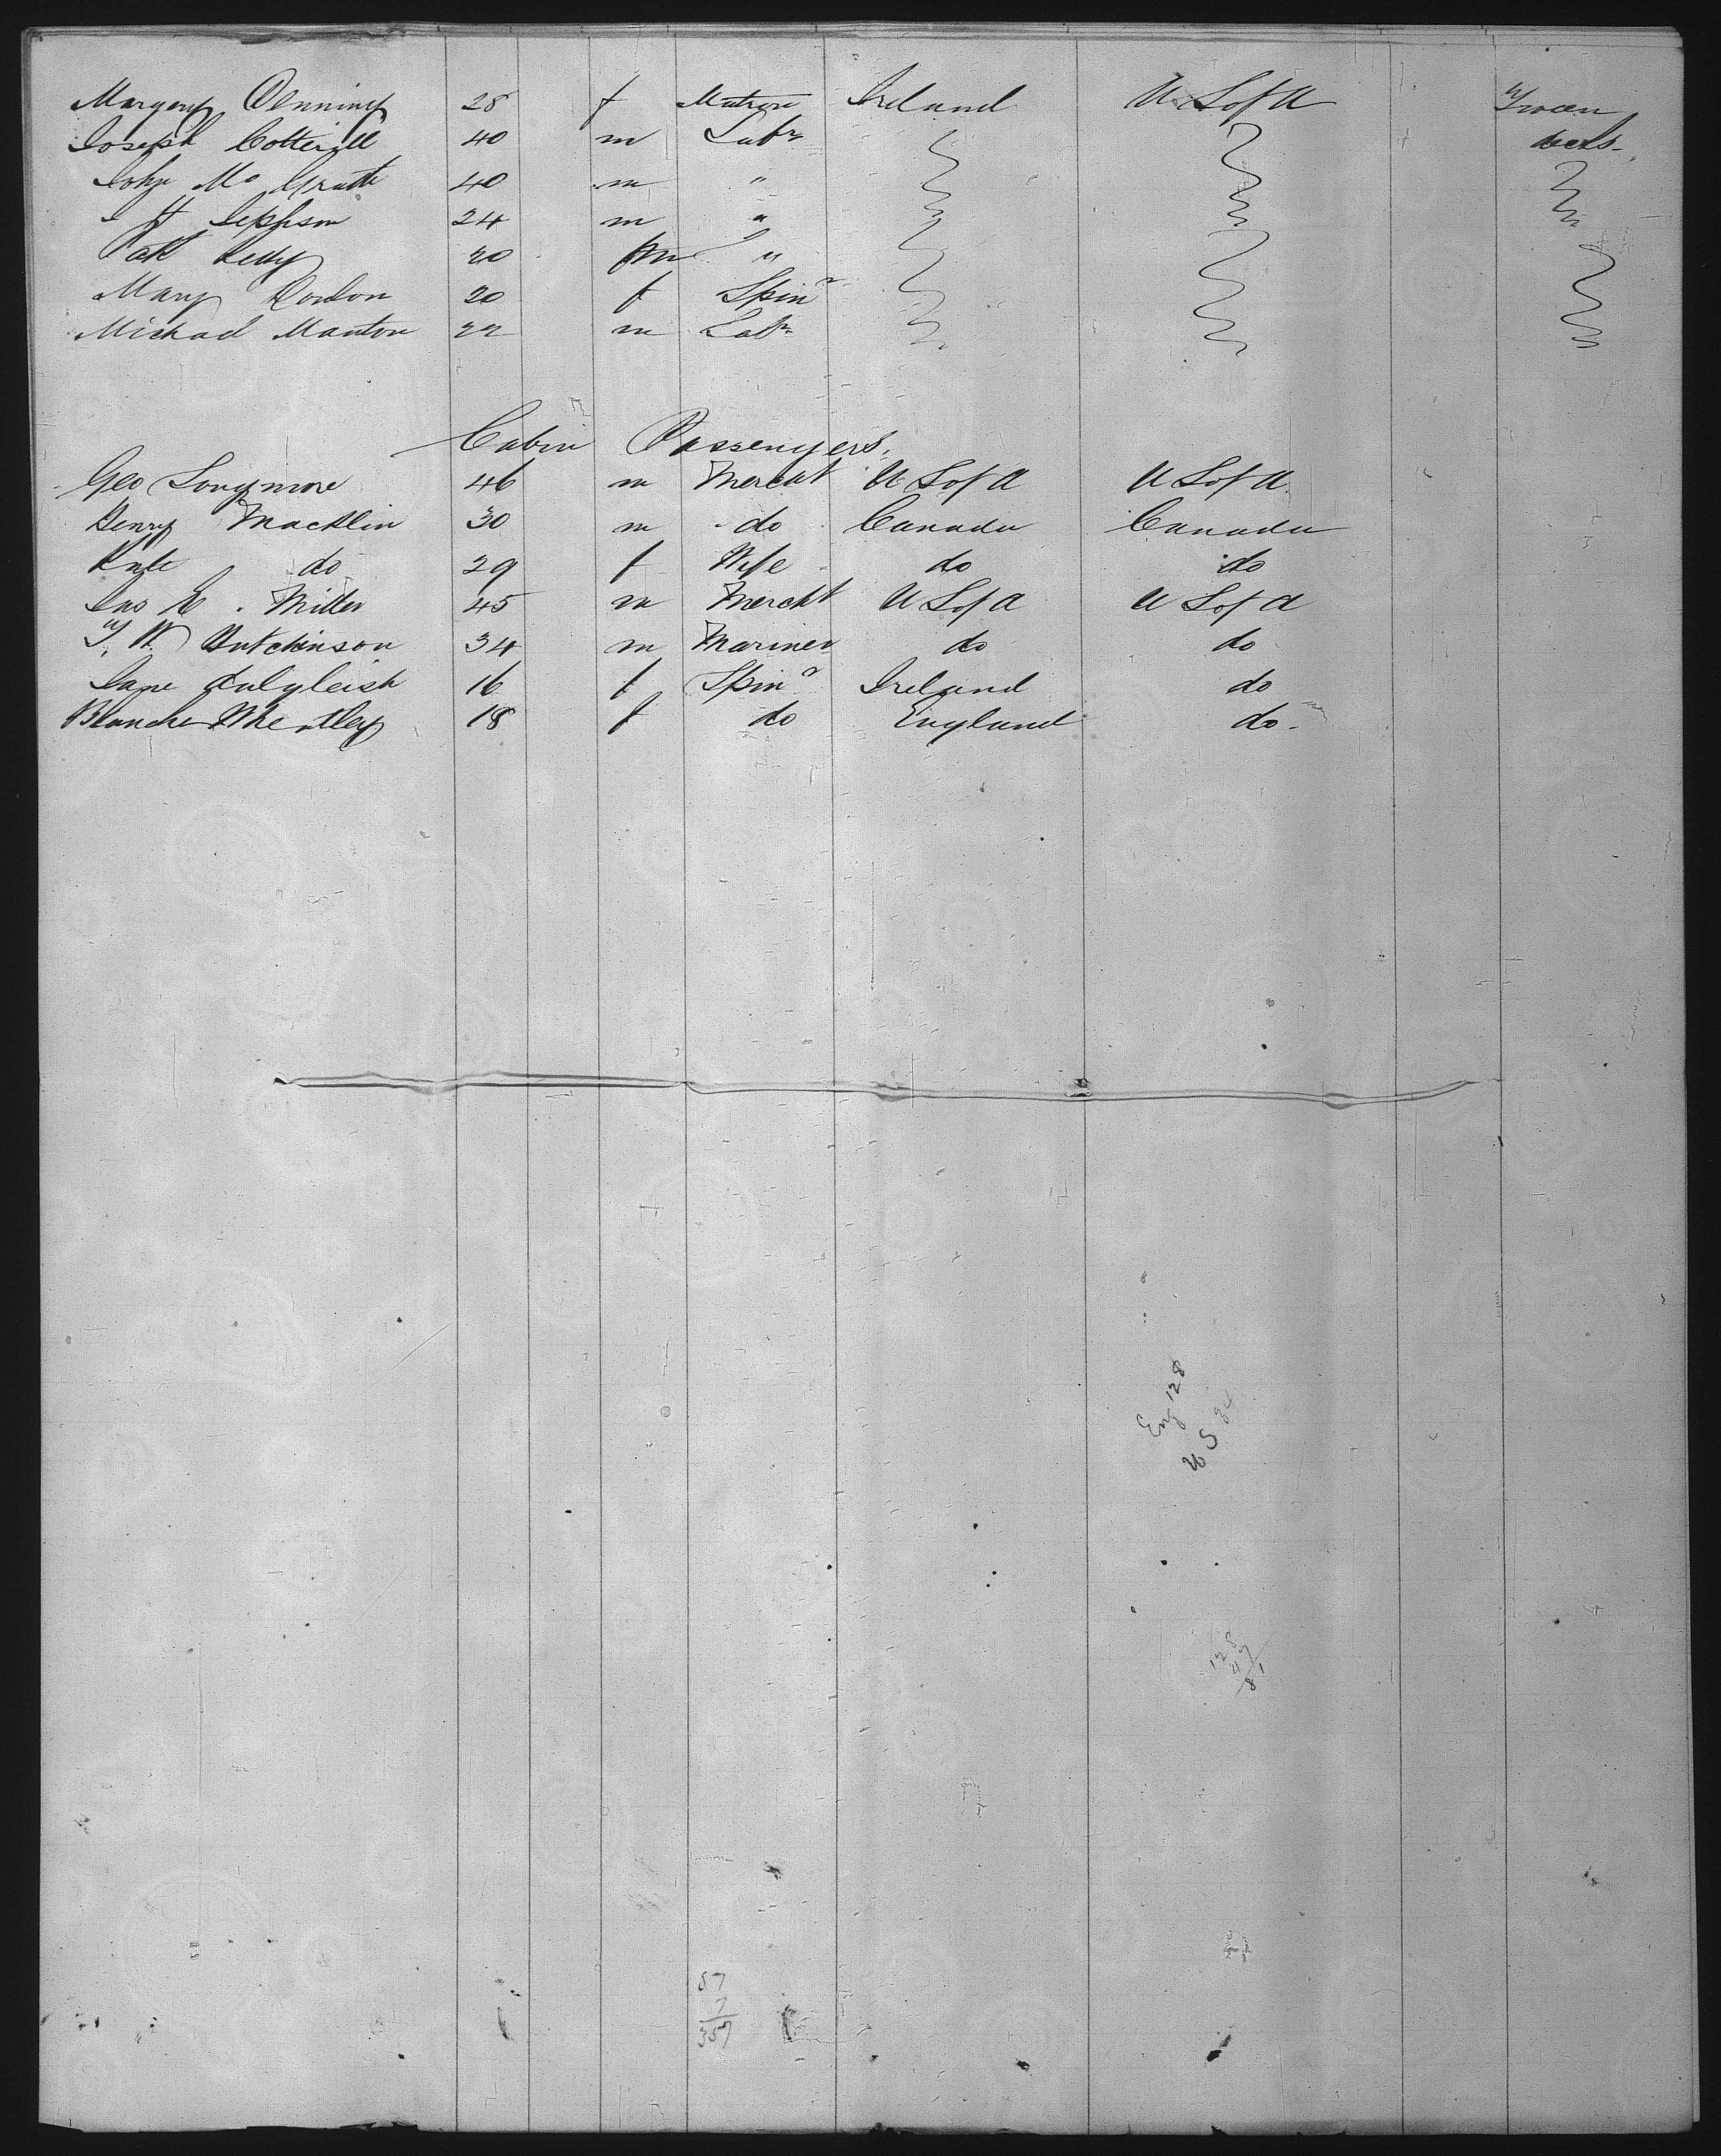 Margery Denning 28 f Matron Ireland U S of A Tween
Joseph Cotterill 40 m Labr decks
John Mc Grath 40 m "
J H Jephson 24 m "
Patk Kelly 20 m "
Mary Conlon 20 f Spinr
Michael Manton 22 m Labr
Cabin Passengers.
Geo Longmore 46 m Mercht U S of A U S of A
Henry Macklin 30 m do Canada Canada
Kate do 29 f Wife do do
Jas E. Miller 45 m Mercht U S of A U S of A
T. W. Hutchinson 34 m Mariner do do
Jane Dalgleish 16 f Spinr Ireland do
Blanche Wheatley 18 f do England do
Eng 128
U S
128
47
81
57
7
357